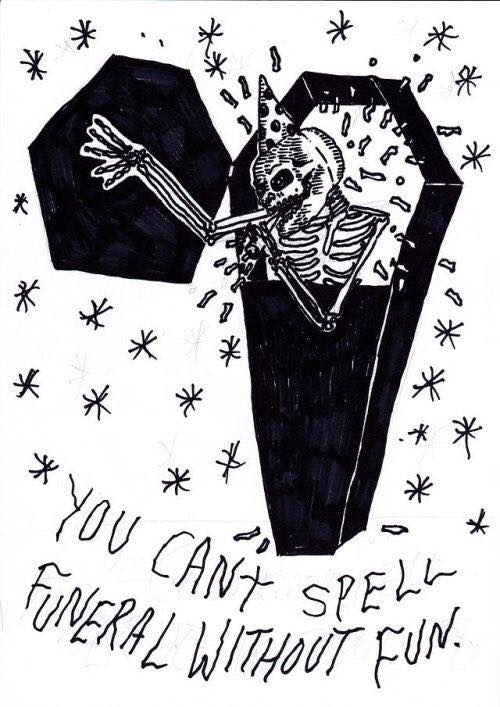 YOU CAN'T SPELL
FUNERAL WITHOUT FUN.